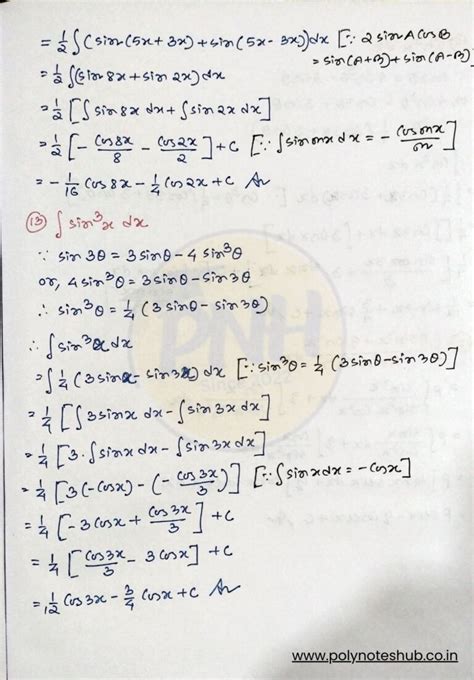 = 1/2 ∫(sin(5x+3x) + sin(5x-3x))dx [∵ 2 sinA cosB
= sin(A+B) + sin(A-B)]
= 1/2 ∫(sin 8x + sin 2x) dx
= 1/2 [∫ sin 8x dx + ∫ sin 2x dx]
= 1/2 [- cos8x/8 - cos2x/2] + C [∵ ∫ sin mx dx = - cos mx/m]
= - 1/16 cos 8x - 1/4 cos 2x + C Ans
(13) ∫ sin³x dx
∵ sin 3θ = 3 sinθ - 4 sin³θ
or, 4 sin³θ = 3 sinθ - sin 3θ
∴ sin³θ = 1/4 (3 sinθ - sin 3θ)
∴ ∫ sin³x dx
= ∫ 1/4 (3 sinx - sin 3x) dx [∵ sin³θ = 1/4 (3 sinθ - sin 3θ)]
= 1/4 [∫ 3 sinx dx - ∫ sin 3x dx]
= 1/4 [3. ∫ sinx dx - ∫ sin 3x dx]
= 1/4 [3(-cosx) - (- cos3x/3)] [∵ ∫ sinx dx = -cosx]
= 1/4 [-3 cosx + cos3x/3] + C
= 1/4 [cos3x/3 - 3 cosx] + C
= 1/12 cos 3x - 3/4 cosx + C Ans
PNH
www.polynoteshub.co.in